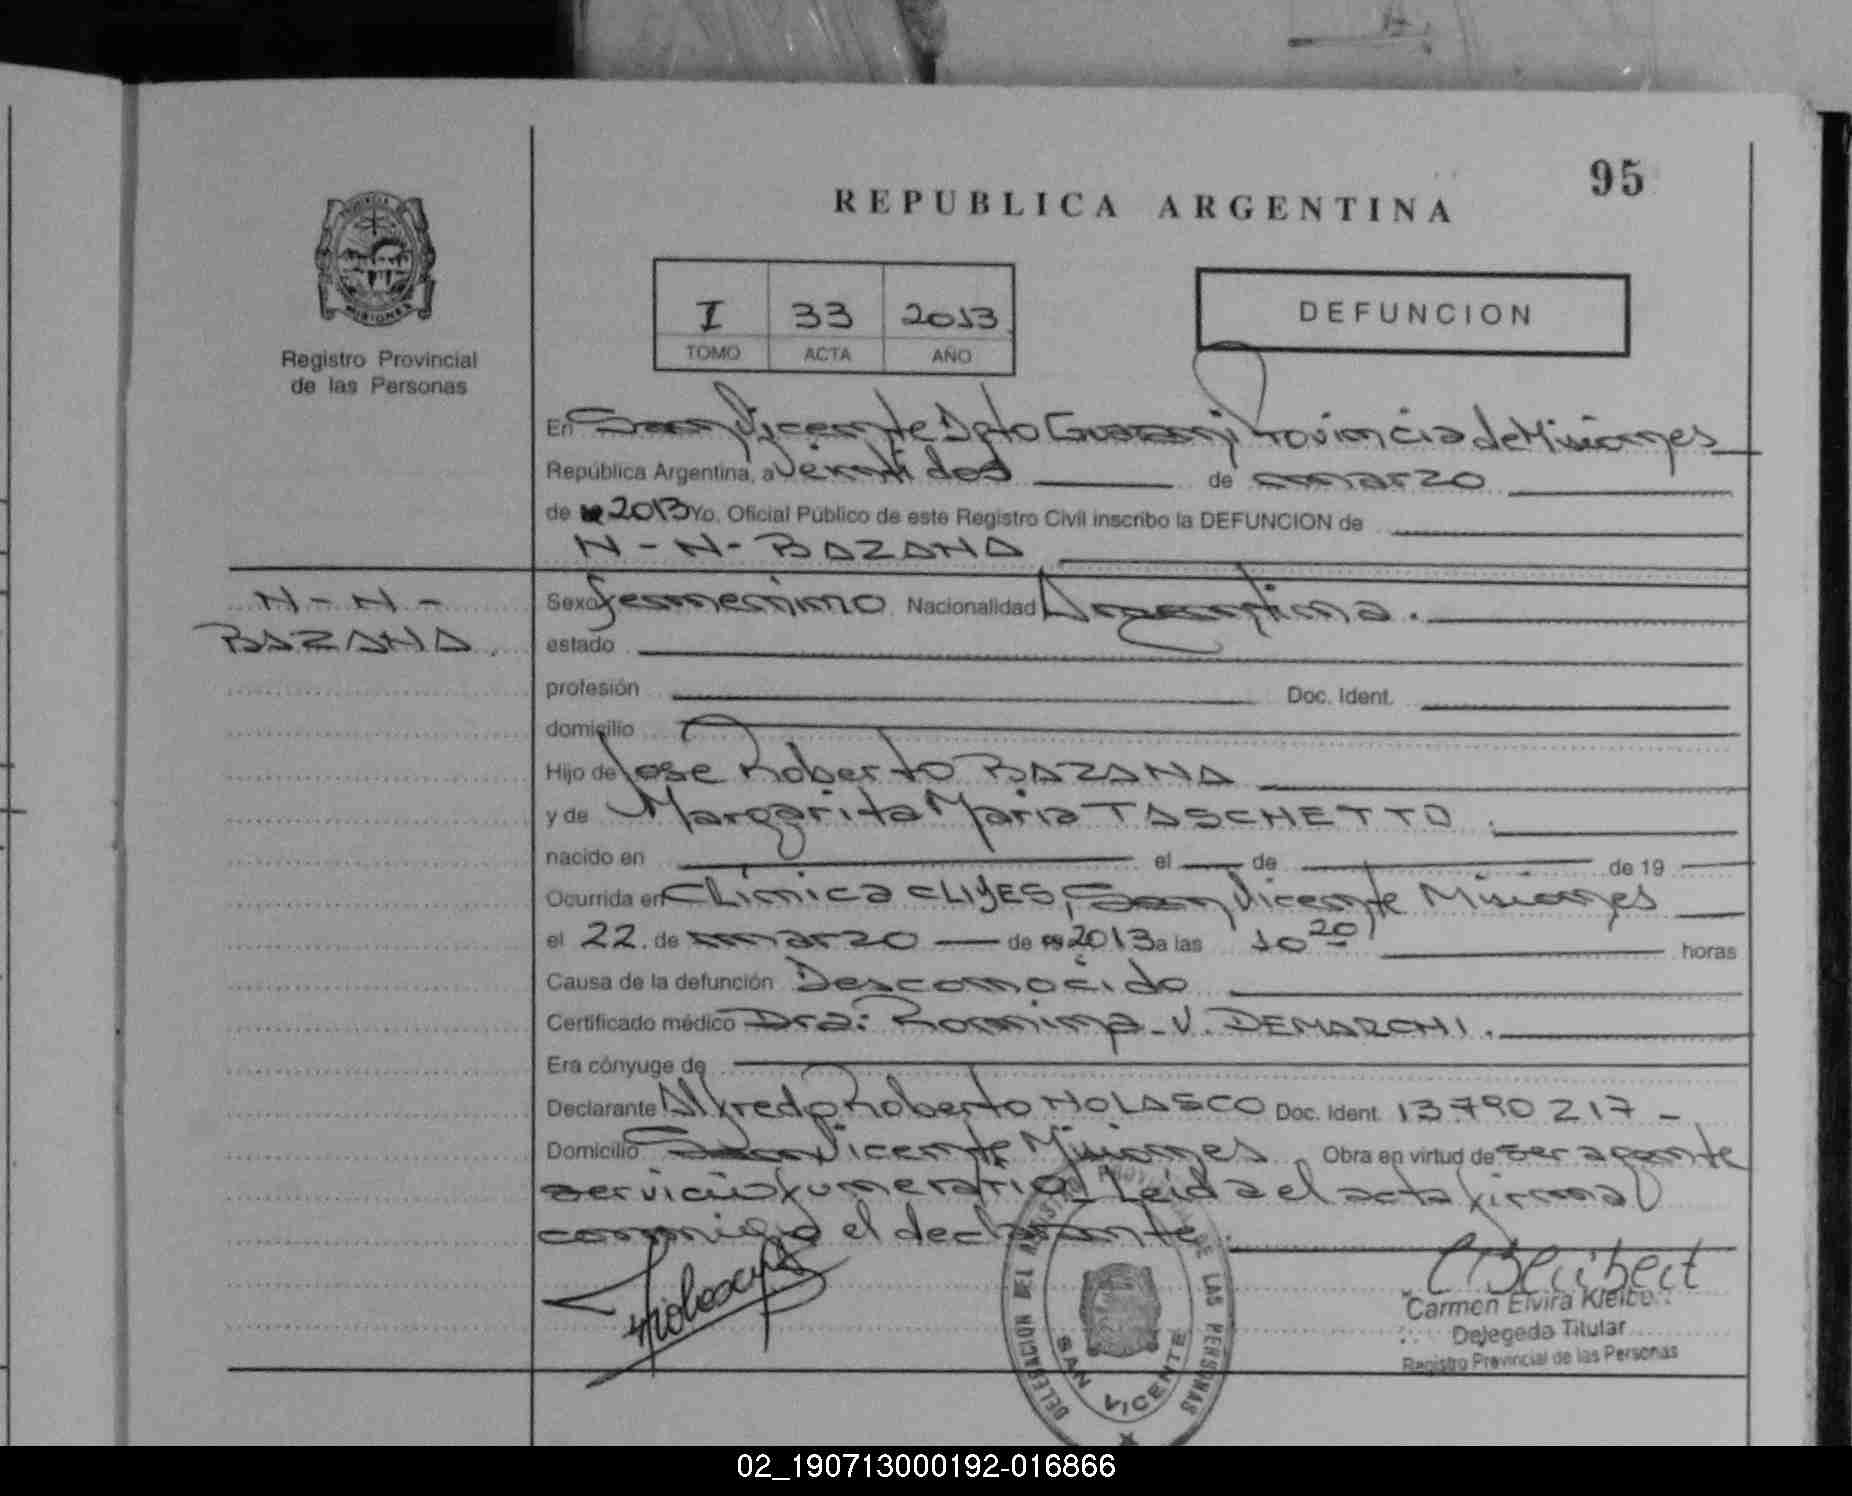 95
REPUBLICA ARGENTINA
PROVINCIA
MISIONES
Registro Provincial
de las Personas
I 33 2013
TOMO ACTA AÑO
DEFUNCION
En San Vicente Dpto Guarani Provincia de Misiones
República Argentina, a Veintidos de marzo
de 2013 Yo, Oficial Público de este Registro Civil inscribo la DEFUNCION de
N-N-BAZANA
N-N-
BAZANA.
Sexo femenino Nacionalidad Argentina.
estado
profesión Doc. Ident.
domicilio
Hijo de Jose Roberto BAZANA
y de Margarita Maria TASCHETTO.
nacido en el de de 19
Ocurrida en Clinica CLIYES, San Vicente Misiones
el 22. de marzo de 2013 a las 10 20 horas
Causa de la defunción Desconocido
Certificado médico Dra: Romina V. DEMARCHI.
Era cónyuge de
Declarante Alfredo Roberto NOLASCO Doc. Ident. 13790217-
Domicilio San Vicente Misiones Obra en virtud de ser agente
servicio funerario. Leida el acta firma
conmigo el declarante.
DELEGACION DEL REGISTRO PROVINCIAL DE LAS PERSONAS
SAN VICENTE
Carmen Elvira
Delegada Titular
Registro Provincial de las Personas
02_190713000192-016866